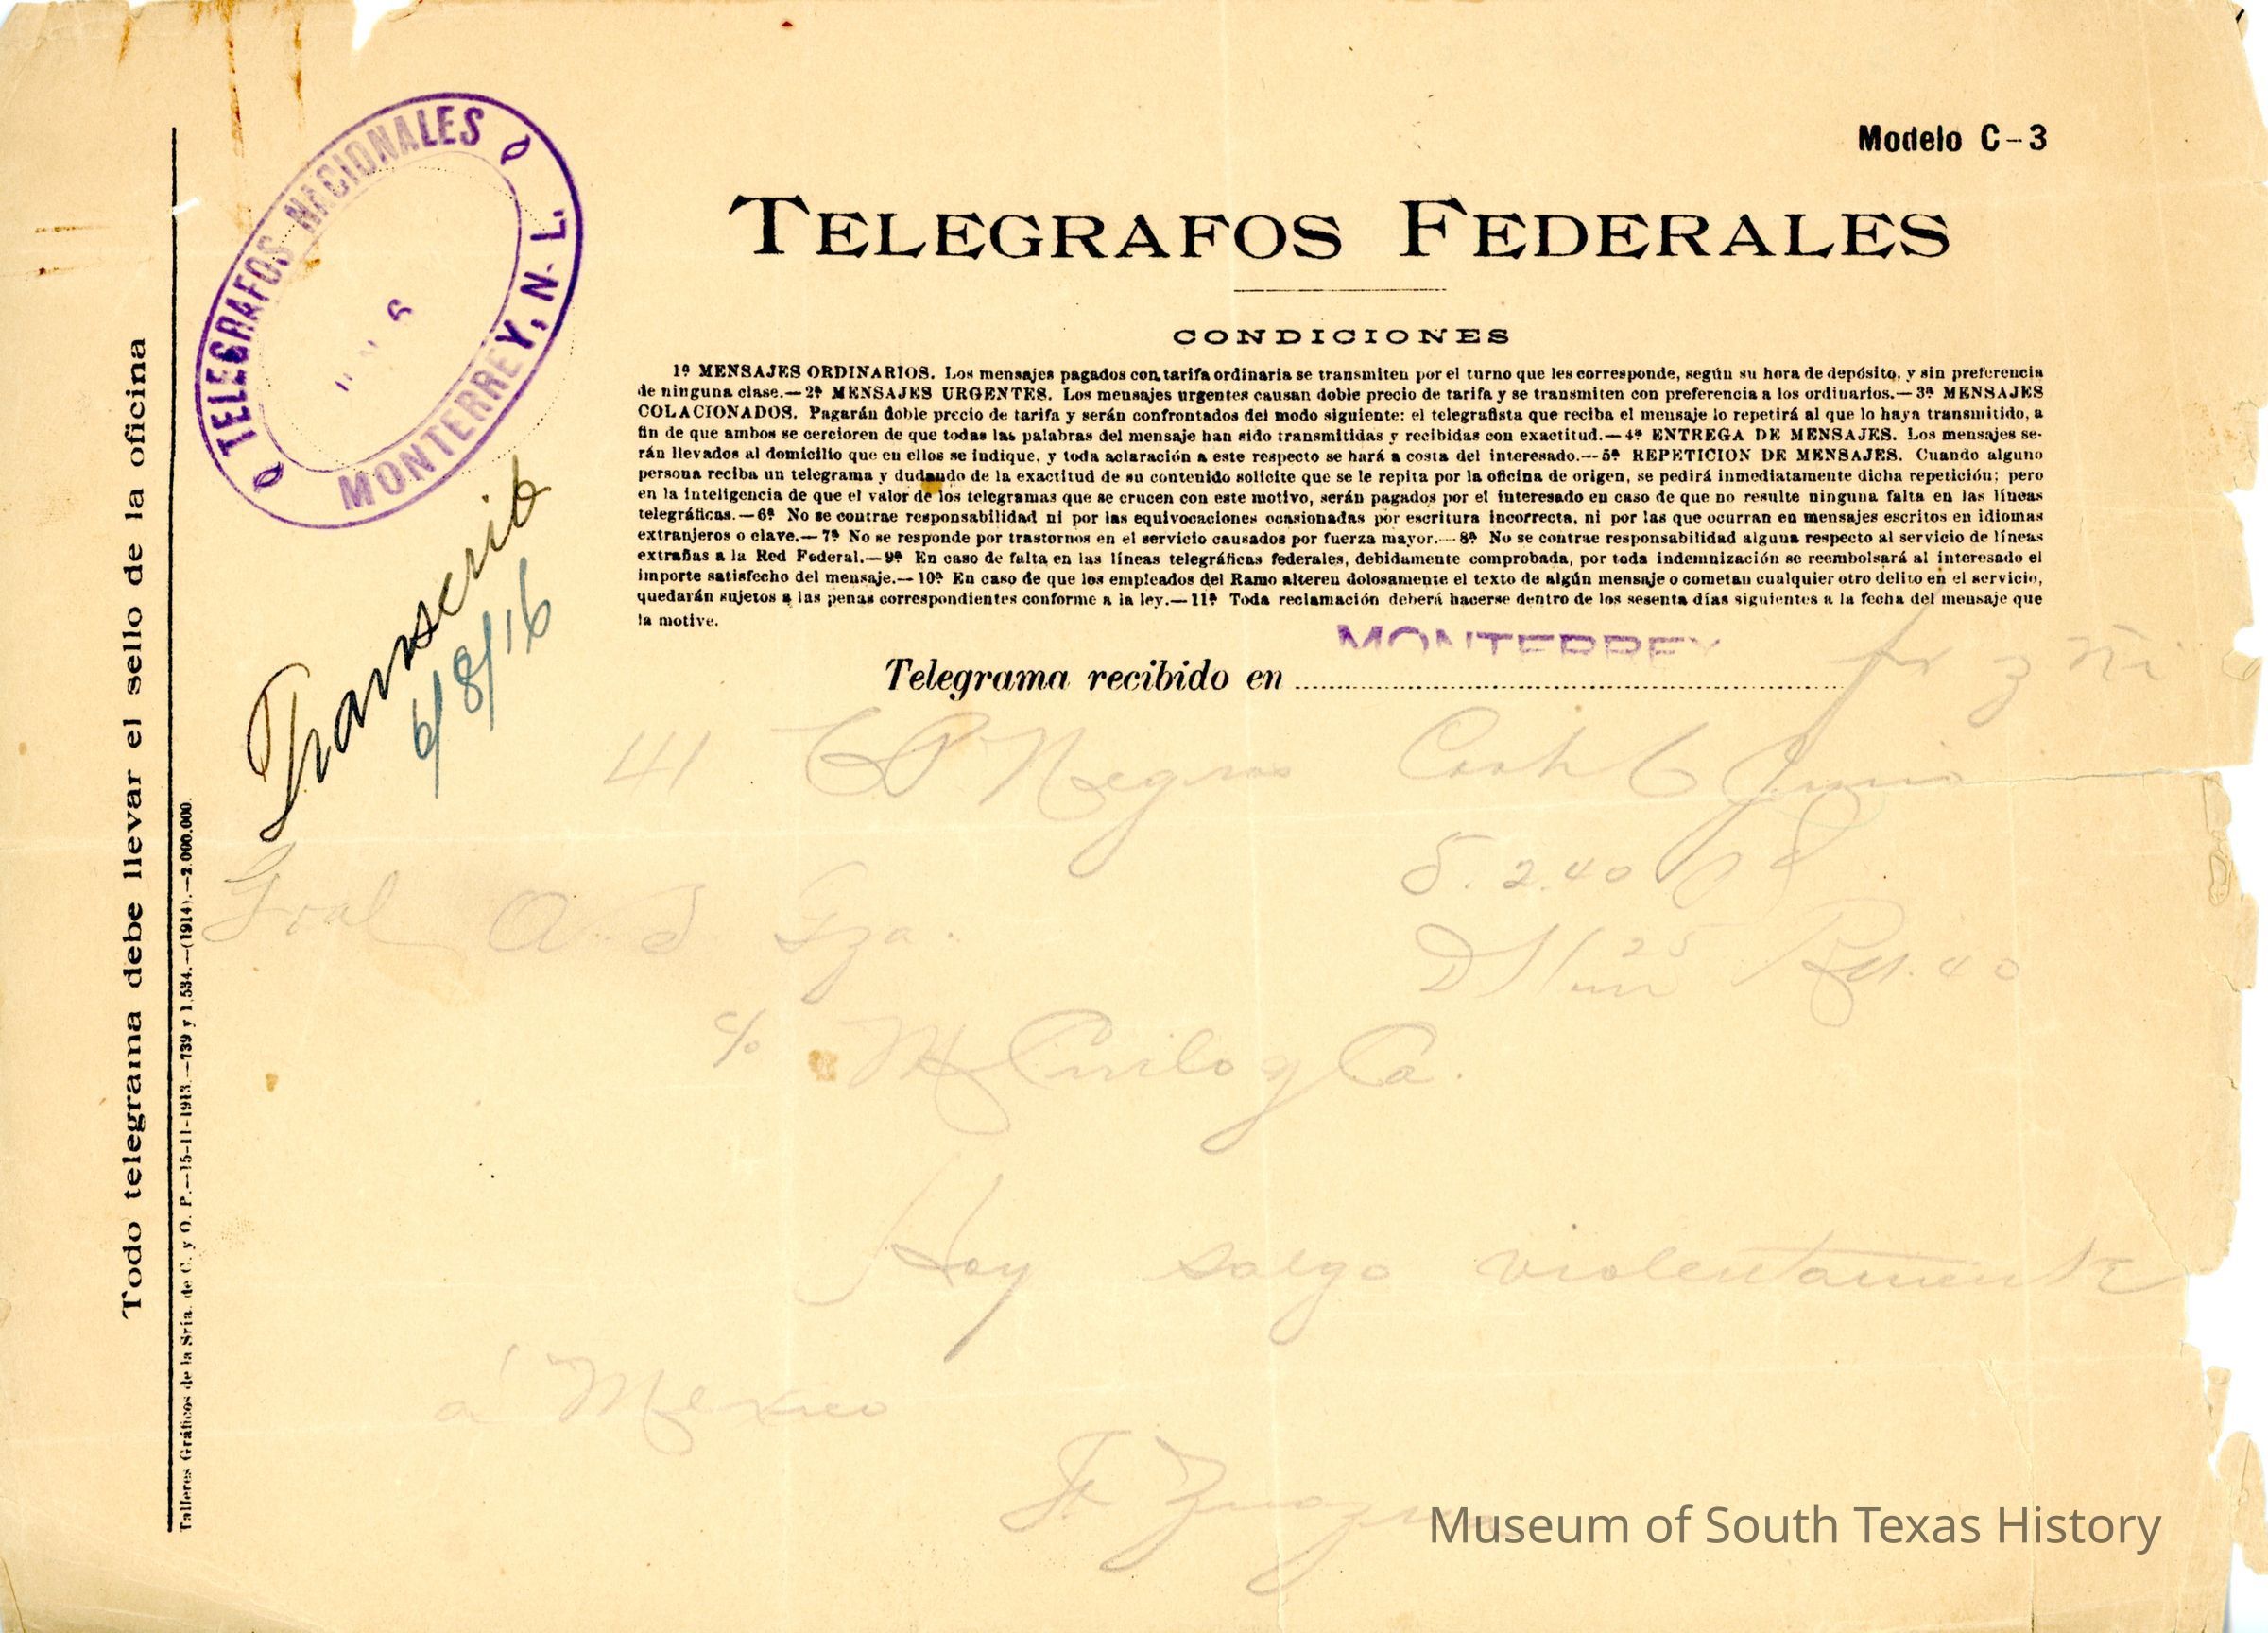 Modelo C-3
TELEGRAFOS FEDERALES
CONDICIONES
1ª MENSAJES ORDINARIOS. Los mensajes pagados con tarifa ordinaria se transmiten por el turno que les corresponde, según su hora de depósito, y sin preferencia
de ninguna clase.—2ª MENSAJES URGENTES. Los mensajes urgentes causan doble precio de tarifa y se transmiten con preferencia a los ordinarios.—3ª MENSAJES
COLACIONADOS. Pagarán doble precio de tarifa y serán confrontados del modo siguiente: el telegrafista que reciba el mensaje lo repetirá al que lo haya transmitido, a
fin de que ambos se cercioren de que todas las palabras del mensaje han sido transmitidas y recibidas con exactitud.—4ª ENTREGA DE MENSAJES. Los mensajes se-
rán llevados al domicilio que en ellos se indique, y toda aclaración a este respecto se hará a costa del interesado.—5ª REPETICION DE MENSAJES. Cuando alguno
persona reciba un telegrama y dudando de la exactitud de su contenido solicite que se le repita por la oficina de origen, se pedirá inmediatamente dicha repetición; pero
en la inteligencia de que el valor de los telegramas que se crucen con este motivo, serán pagados por el interesado en caso de que no resulte ninguna falta en las líneas
telegráficas.—6ª No se contrae responsabilidad ni por las equivocaciones ocasionadas por escritura incorrecta, ni por las que ocurran en mensajes escritos en idiomas
extranjeros o clave.—7ª No se responde por trastornos en el servicio causados por fuerza mayor.—8ª No se contrae responsabilidad alguna respecto al servicio de líneas
extrañas a la Red Federal.—9ª En caso de falta en las líneas telegráficas federales, debidamente comprobada, por toda indemnización se reembolsará al interesado el
importe satisfecho del mensaje.—10ª En caso de que los empleados del Ramo alteren dolosamente el texto de algún mensaje o cometan cualquier otro delito en el servicio,
quedarán sujetos a las penas correspondientes conforme a la ley.—11ª Toda reclamación deberá hacerse dentro de los sesenta días siguientes a la fecha del mensaje que
la motive.
Telegrama recibido en MONTERREY
TELEGRAFOS NACIONALES
6
MONTERREY, N. L.
Transcrito
6/8/16
Todo telegrama debe llevar el sello de la oficina
Talleres Gráficos de la Sría. de C. y O. P.—15-11-1913.—739 y 1,534.—(1914).—2.000,000.
41 CP Negras Coah 6 Junio
5. 2.40
Gral A. S Gza.
D 25 40
c/o M Cirilo y Ca.
Hoy salgo violentamente
á Mexico
F Zuazua
Museum of South Texas History